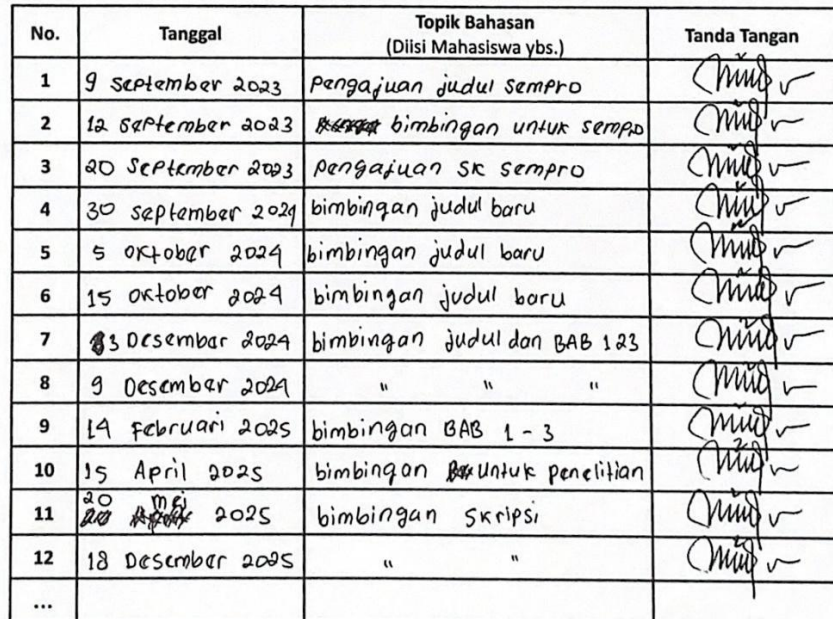 No. Tanggal Topik Bahasan (Diisi Mahasiswa ybs.) Tanda Tangan
1 9 September 2023 Pengajuan judul sempro
2 12 September 2023 bimbingan untuk sempro
3 20 September 2023 Pengajuan SK sempro
4 30 september 2024 bimbingan judul baru
5 5 oktober 2024 bimbingan judul baru
6 15 oktober 2024 bimbingan judul baru
7 3 Desember 2024 bimbingan judul dan BAB 123
8 9 Desember 2024 " " "
9 14 Februari 2025 bimbingan BAB 1 - 3
10 15 April 2025 bimbingan untuk penelitian
11 20 mei 2025 bimbingan skripsi
12 18 Desember 2025 " "
...